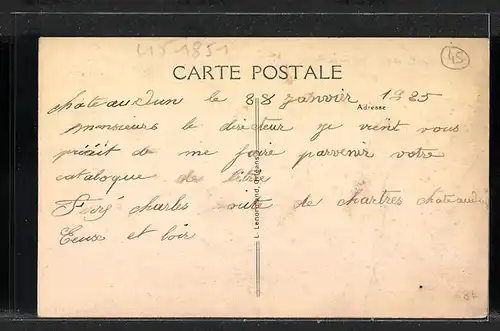 4151851
45
CARTE POSTALE
chateaudun le 28 janvier 1925
Adresse
monsieurs le directeur je vient vous
de me faire parvenir votre
catalogue de litre
charles route de chartres chateaudun
Eure et loir
L. Lenormand, Orléans